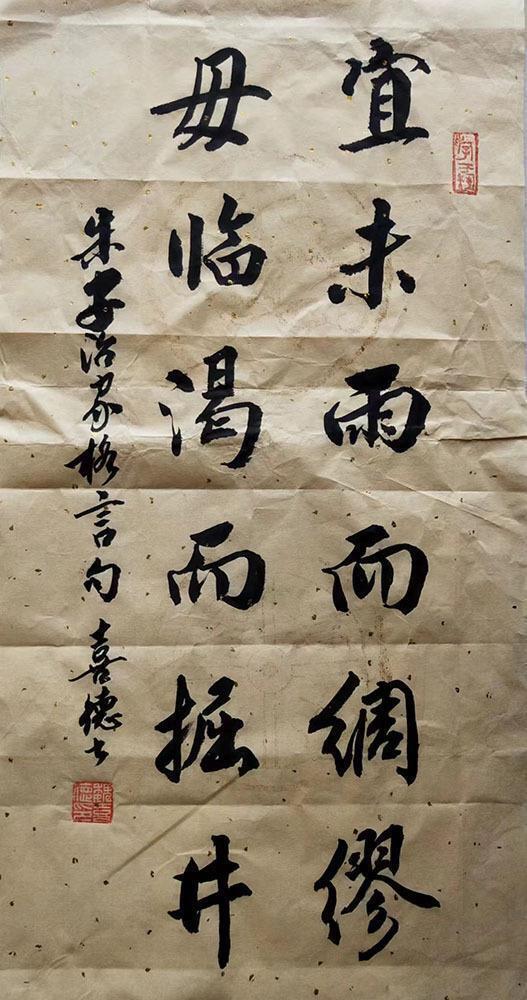 宜未雨而绸缪
毋临渴而掘井
朱子治家格言句 喜德书